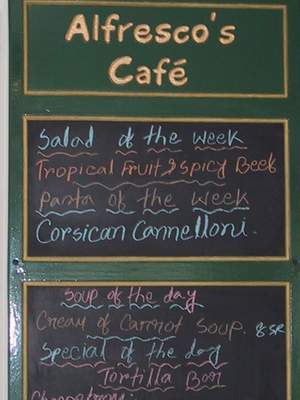 Alfresco's
Café
Salad of the week
Tropical Fruit & Spicy Beef
Pasta of the week
Corsican Cannelloni.
Soup of the day
Cream of Carrot Soup.
Special of the day
Tortilla Bar